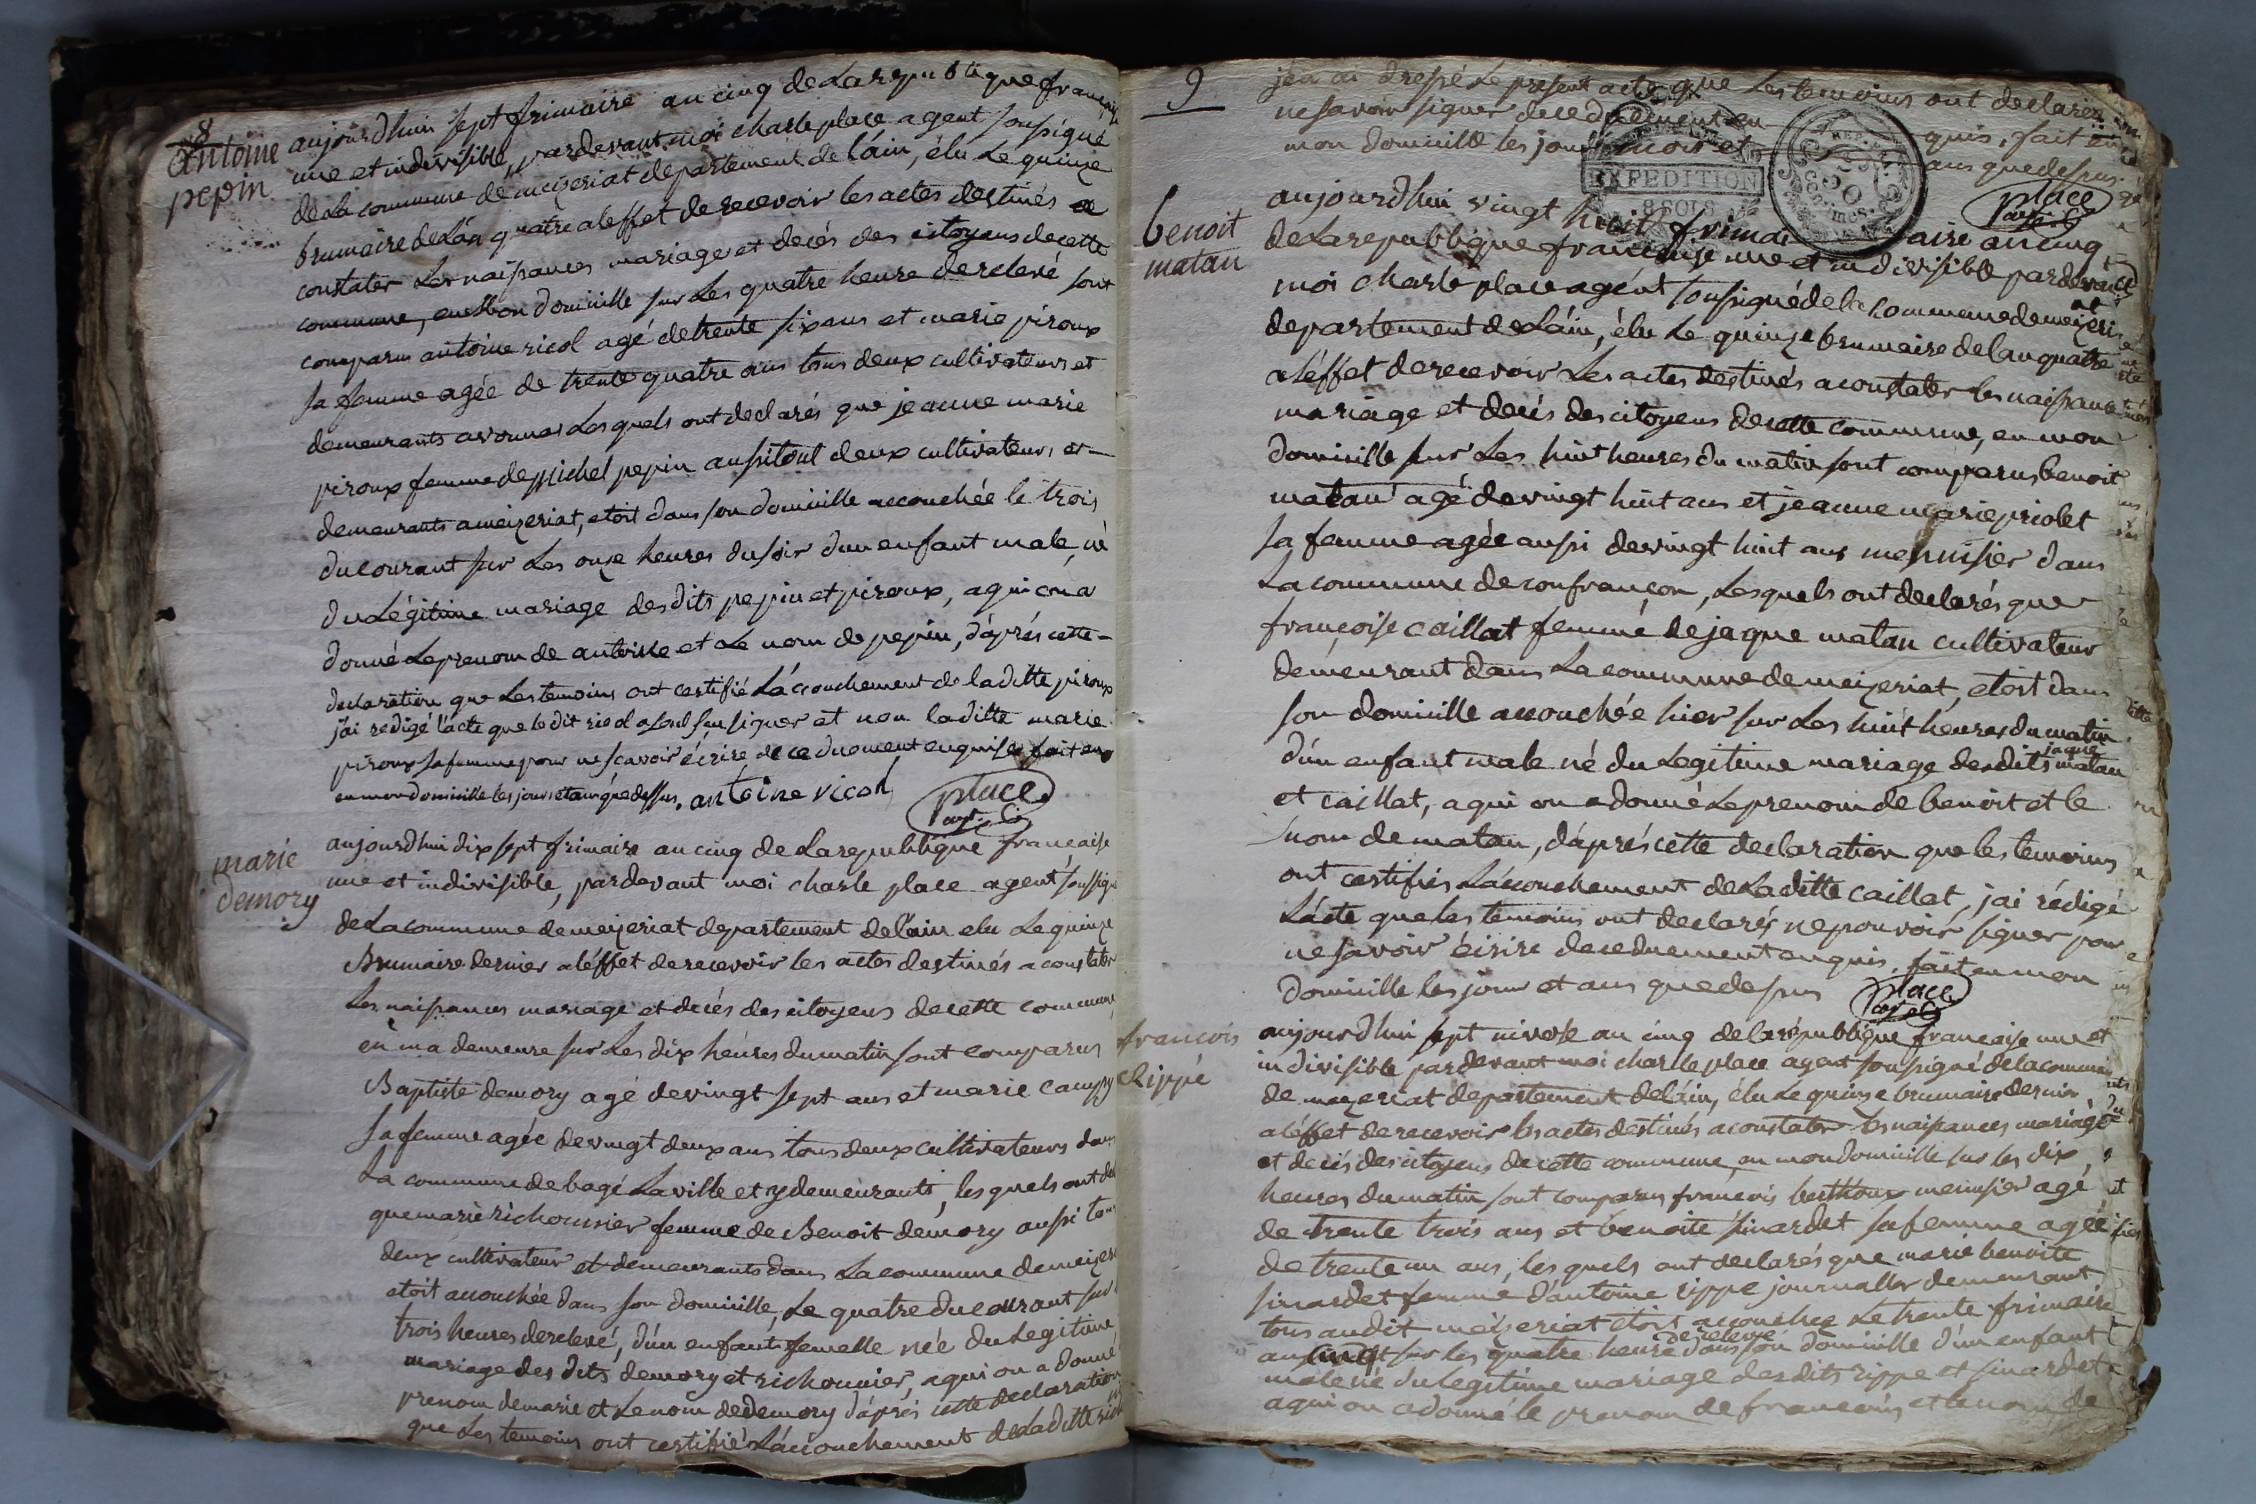 8
antoine
pepin
aujourdhui sept frimaire an cinq de La republique française
une et indivisible, pardevant moi charle place agent soussigné
de La commune de meizeriat departement de l'ain, élu Le quinze
brumaire de L'an quatre a leffet de recevoir les actes destinés a
constater Les naissances mariage et decés des citoyens de cette
commune, en mon domicille sur Les quatre heure de relevé sont
comparus antoine ricol agé de trente six ans et marie piroux
sa femme agée de trente quatre ans tous deux cultivateurs et
demeurants a vonnas Lesquels ont declarés que jeanne marie
piroux femme de Michel pepin aussi tout deux cultivateurs et
demeurants a meizeriat, etoit dans son domicille accouchée le trois
du courant sur Les onze heures du soir dun enfant male, né
du Légitime mariage des dits pepin et piroux, a qui on a
donné Le prenom de antoine et Le nom de pepin, d'aprés cette
declaration que Les temoins ont certifié L'accouchement de la ditte piroux
j'ai redigé l'acte que le dit ricol a seul seu signer et non la ditte marie
piroux sa femme pour ne scavoir écrire de ce duement enquise fait en
en mon domicille les jours et an que dessus, antoine ricol
place
agt. C.
marie
demory
aujourdhui dix sept frimaire an cinq de La republique française
une et indivisible, pardevant moi charle place agent soussigné
de La commune de meizeriat departement de l'ain elu Le quinze
Brumaire dernier a léffet de recevoir les actes destinés a constater
Les naissances mariage et decés des citoyens de cette commune
en ma demeure sur Les dix heures du matin sont comparus
Baptiste demory agé de vingt sept ans et marie campy
sa femme agée de vingt deux ans tous deux cultivateurs dans
La commune de bagé La ville et y demeurants, les quels ont de
que marie richonnier femme de Benoit demory aussi tous
deux cultivateur et demeurants dans La commune de meizeri
etoit accouchée dans son domicille, Le quatre du courant sur
trois heures de relevé, d'un enfant femelle née du Legitime
mariage des dits demory et richonnier, a qui on a donné
prenom de marie et Le nom de demory d'aprés cette declaration
que Les temoins ont certifié L'accouchement de La ditte ric
9
j'en ai dressé Le present acte que Les temoins ont declarez
ne savoir signer de ce duement en quis, fait en
mon domicille les jour mois et ans que dessus
EXPEDITION
8 SOLS
place
agt. C.
benoit
matan
aujourdhui vingt huit frimaire an cinq
de La republique francaise une et indivisible pardevant
moi charle place agént soussigné de la commune de meizeriat
departement de L'ain, élu Le quinze brumaire de lan quatre
a léffet de recevoir Les actes destinés a constater les naissances
mariage et decés des citoyens de cette commune, en mon
domicille sur Les huit heures du matin sont comparus benoit
matan agé de vingt huit ans et jeanne marie priolet
sa femme agée aussi de vingt huit ans menuisier dans
La commune de confrançon, Lesquels ont declarés que
françoise caillat femme de jaque matan cultivateur
demeurant dans La commune de meizeriat, etoit dans
son domicille accouchée hier sur Les huit heures du matin
d'un enfant male né du Legitime mariage des dits jaque matan
et caillat, a qui on a donné Le prenom de benoit et le
nom de matan, d'aprés cette declaration que les temoins
ont certifiés L'accouchement de La ditte caillat, j'ai rédigé
L'acte que les temoins ont declarés ne pouvoir signer pour
ne savoir écirire de ce duement enquis, fait en mon
domicille les jour et ans que dessus place
agt. C.
francois
Rippe
aujourdhui sept nivose an cinq de la république francaise une et
indivisible pardevant moi charle place agent soussigné de la commune
de mezeriat departement de láin, élu Le quinze brumaire dernier
a léffet de recevoir les actes destinés a constater les naissances mariage
et decés des citoyens de cette commune, en mon domicille sur les dix
heures du matin sont comparus francois berthoux menuisier agé
de trente trois ans et benoite sinardet sa femme agée
de trente un ans, les quels ont declarés que marie benoite
sinardet femme d'antoine rippe journallier demeurant
tous au dit meizeriat etoit accouchee Le trente frimaire
an cinq sur les quatre heure de relevé dans son domicille d'un enfant
male né du legitime mariage des dits rippe et sinardet
a qui on a donné le prenom de francois et le nom de